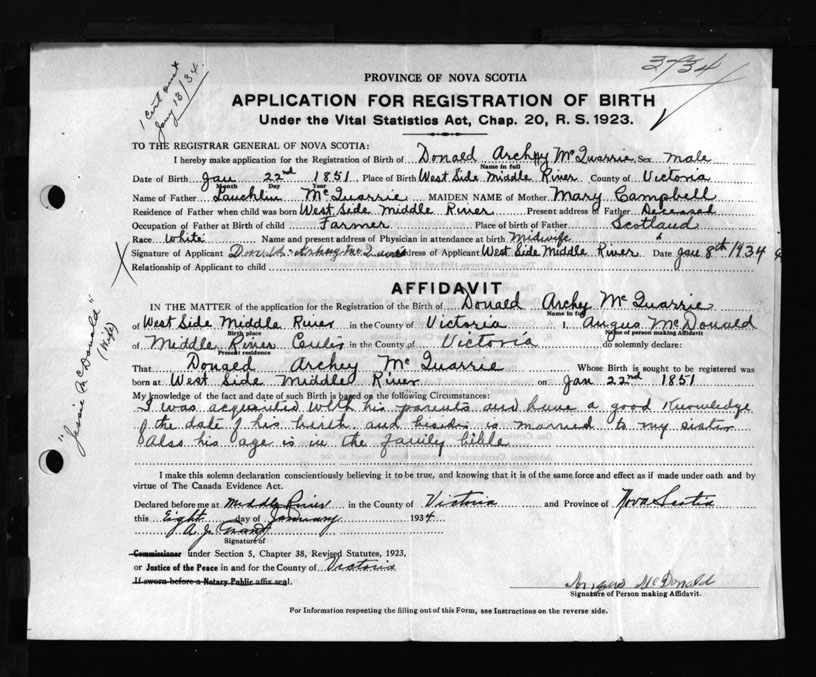 1 Cert sent
Jany 13/34.
3734
PROVINCE OF NOVA SCOTIA
APPLICATION FOR REGISTRATION OF BIRTH
Under the Vital Statistics Act, Chap. 20, R. S. 1923.
TO THE REGISTRAR GENERAL OF NOVA SCOTIA:
I hereby make application for the Registration of Birth of Donald Archy McQuarrie Sex male
Name in full
Date of Birth Jan 22nd 1851 Place of Birth West Side Middle River County of Victoria
Month Day Year
Name of Father Lauchlin McQuarrie MAIDEN NAME of Mother Mary Campbell
Residence of Father when child was born West Side Middle River Present address of Father Deceased
Occupation of Father at Birth of child Farmer Place of birth of Father Scotland
Race White Name and present address of Physician in attendance at birth Midwife
Signature of Applicant Donald Archy McQuarrie Address of Applicant West Side Middle River Date Jan 8th 1934
Relationship of Applicant to child
AFFIDAVIT
IN THE MATTER of the application for the Registration of the Birth of Donald Archy McQuarrie
Name in full
of West Side Middle River in the County of Victoria I, Angus McDonald
Birth place Name of person making Affidavit
of Middle River in the County of Victoria do solemnly declare:
Present residence
That Donald Archey McQuarrie Whose Birth is sought to be registered was
born at West Side Middle River on Jan 22nd 1851
My knowledge of the fact and date of such Birth is based on the following Circumstances:
I was acquainted with his parents and have a good knowledge
of the date of his birth and besides is married to my sister
Also his age is in the family bible
"Jessie McDonald"
(Wife)
I make this solemn declaration conscientiously believing it to be true, and knowing that it is of the same force and effect as if made under oath and by
virtue of The Canada Evidence Act.
Declared before me at Middle River in the County of Victoria and Province of Nova Scotia
this Eight day of January 1934
A. J.
Signature of
Commissioner under Section 5, Chapter 38, Revised Statutes, 1923,
or Justice of the Peace in and for the County of Victoria
If sworn before a Notary Public affix seal.
Angus McDonald
Signature of Person making Affidavit.
For Information respecting the filling out of this Form, see Instructions on the reverse side.